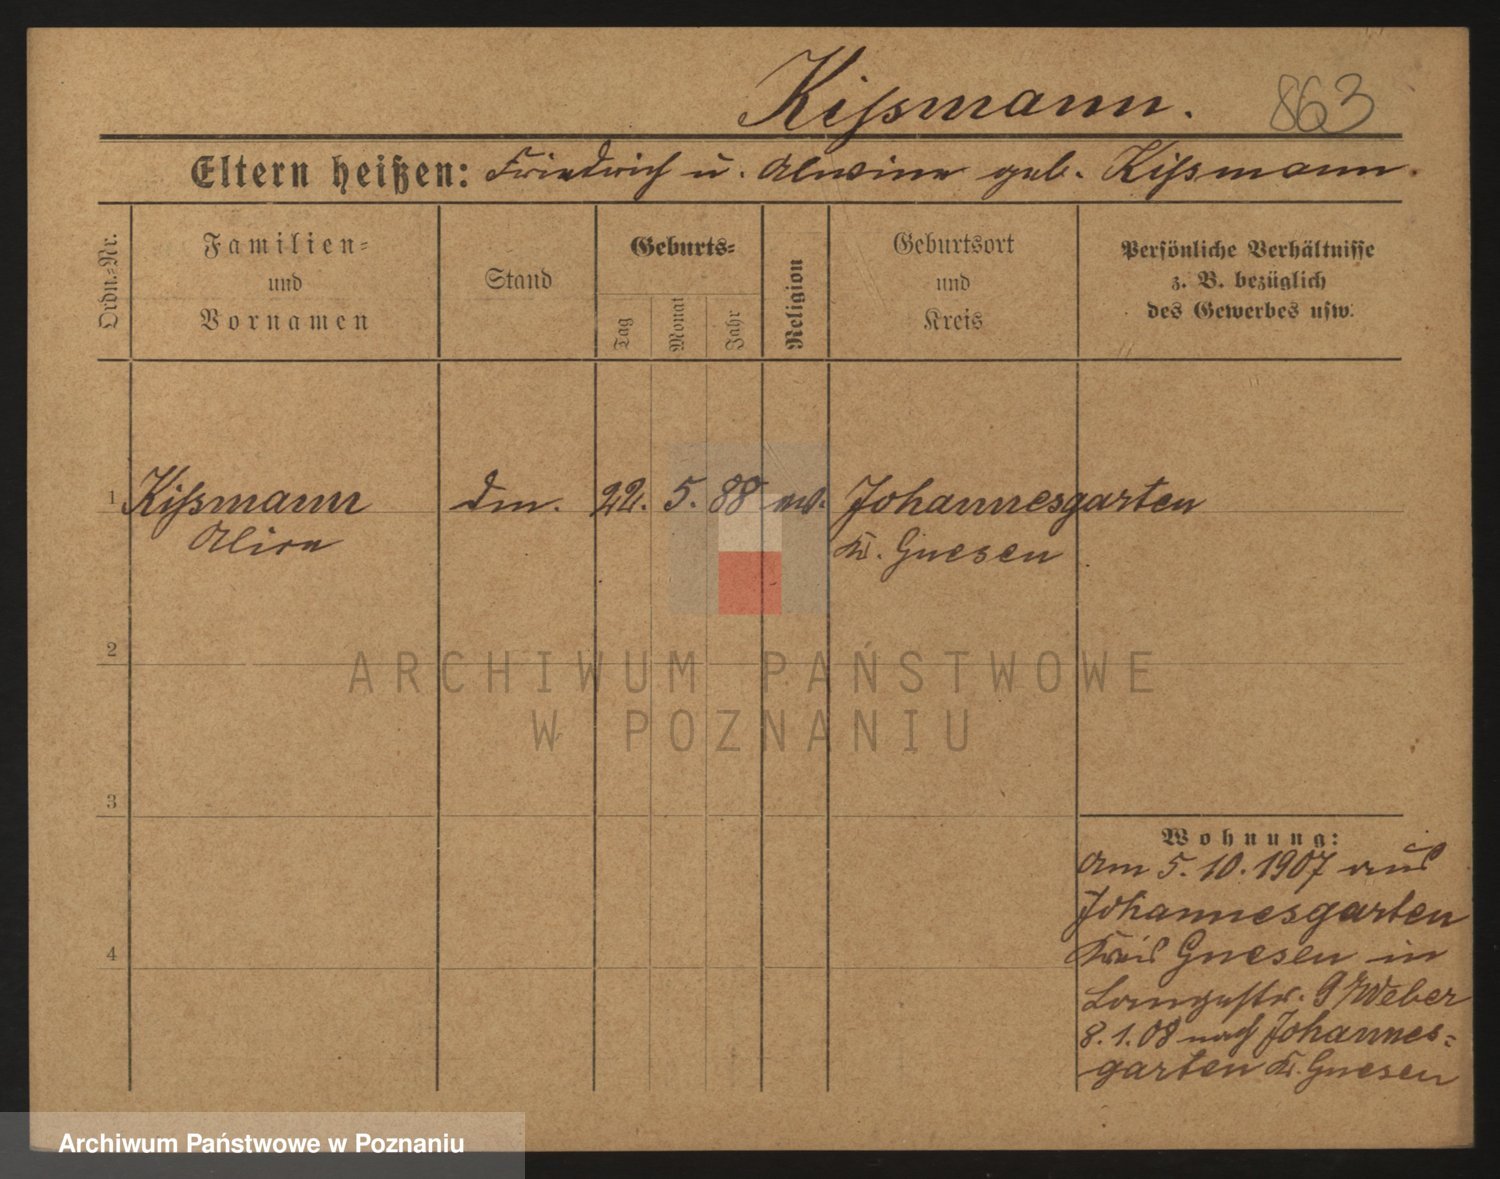 Kißmann.
863
Eltern heißen: Friedrich u. Alwine geb. Kißmann.
Ordn.-Nr.
Familien-
und
Vornamen
Stand
Geburts-
Tag
Monat
Jahr
Religion
Geburtsort
und
Kreis
Persönliche Verhältnisse
z. B. bezüglich
des Gewerbes usw.
1 Kißmann 22. 5. 88 ev. Johannesgarten
Kr. Gnesen
2
3
4
Wohnung:
Am 5. 10. 1907 aus
Johannesgarten
Kreis Gnesen in
Langestr. 9 Weber
8. 1. 08 nach Johannes-
garten Kr. Gnesen
ARCHIWUM PAŃSTWOWE
W POZNANIU
Archiwum Państwowe w Poznaniu